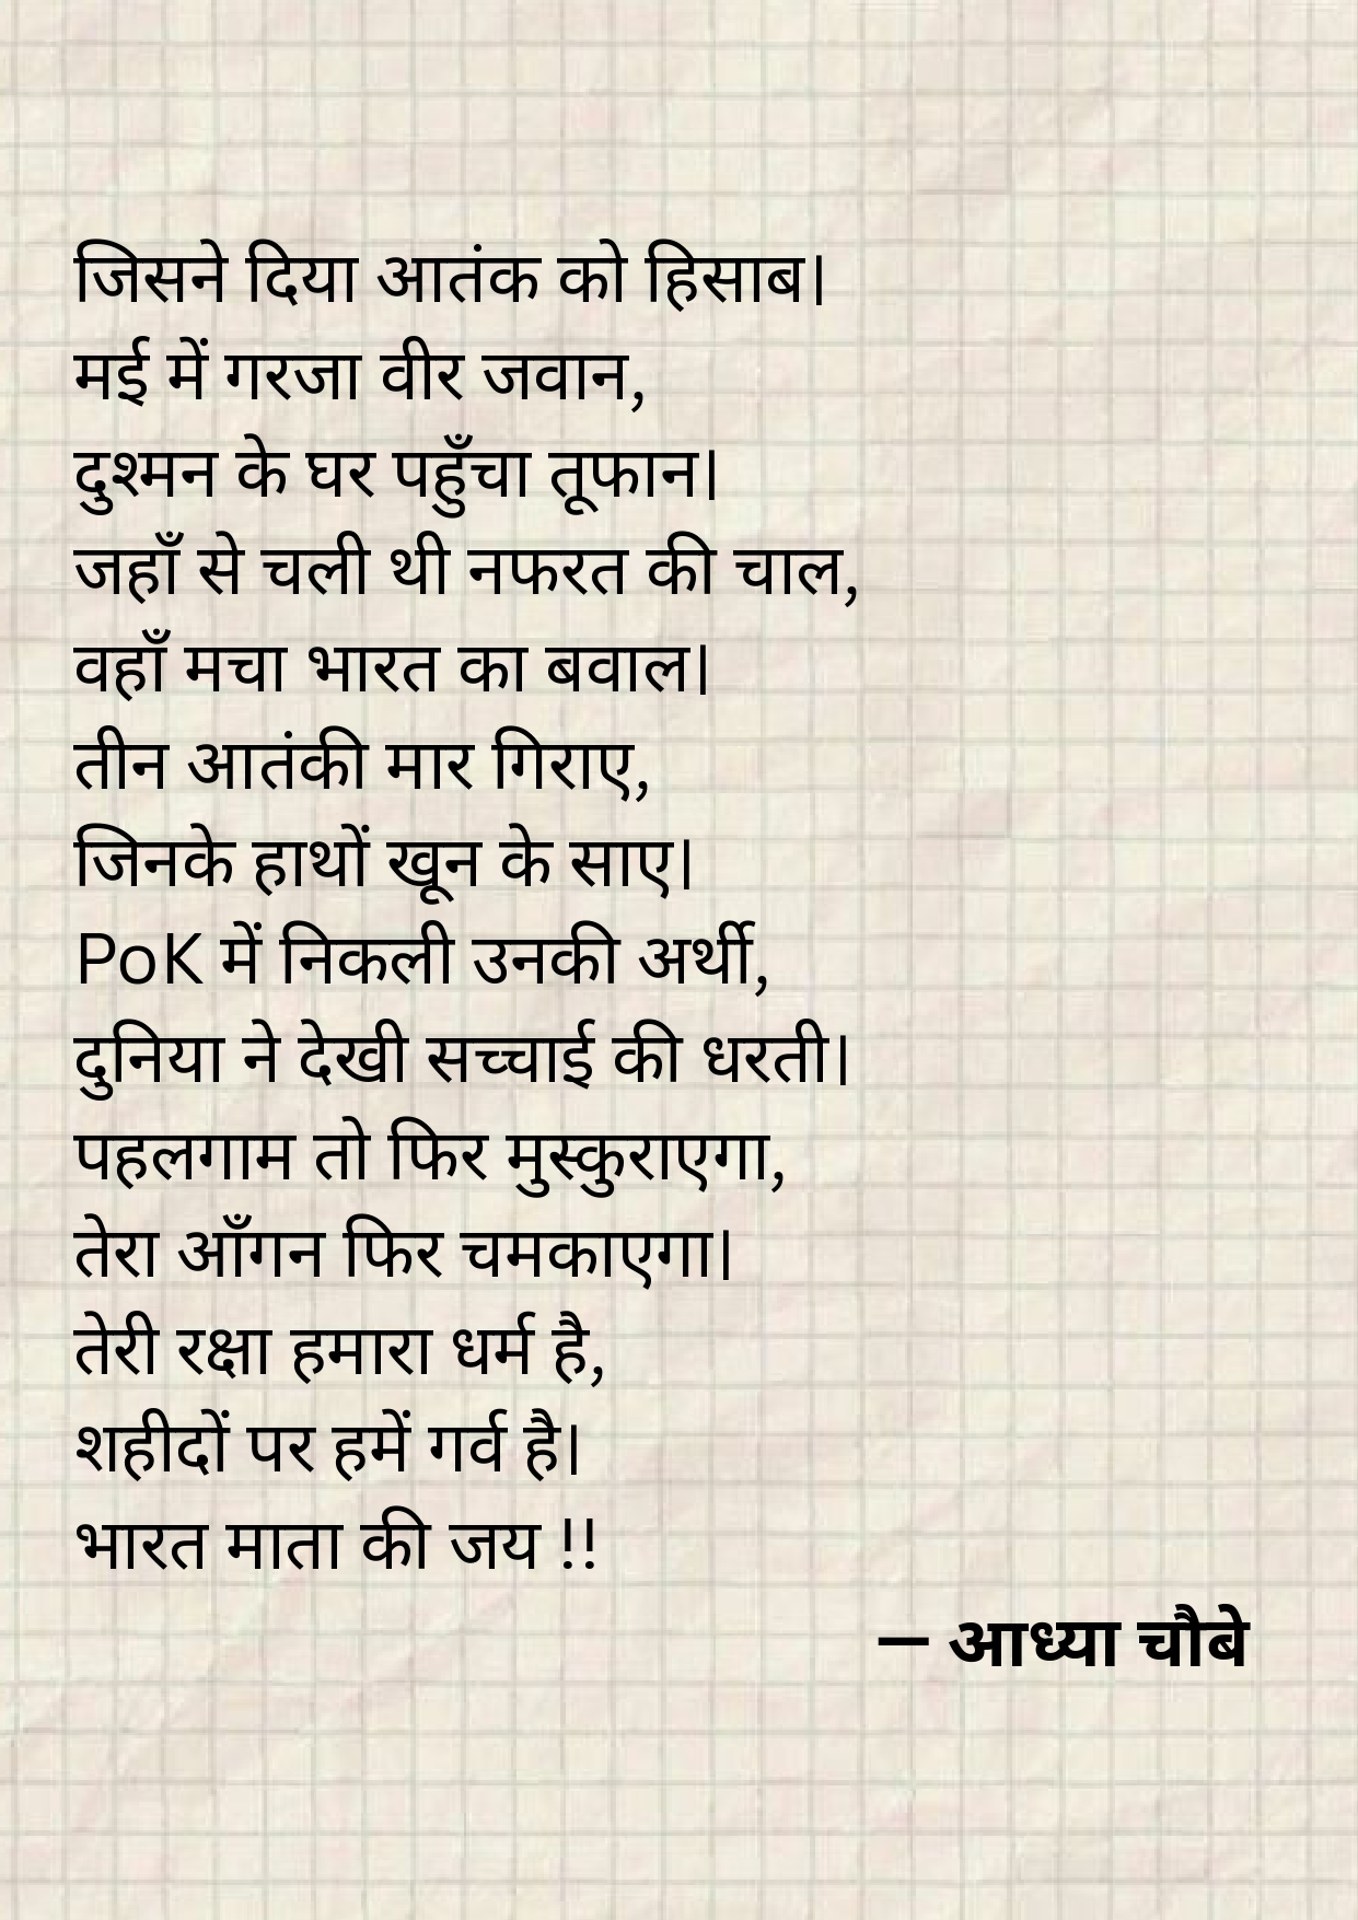 जिसने दिया आतंक को हिसाब।
मई में गरजा वीर जवान,
दुश्मन के घर पहुँचा तूफान।
जहाँ से चली थी नफरत की चाल,
वहाँ मचा भारत का बवाल।
तीन आतंकी मार गिराए,
जिनके हाथों खून के साए।
PoK में निकली उनकी अर्थी,
दुनिया ने देखी सच्चाई की धरती।
पहलगाम तो फिर मुस्कुराएगा,
तेरा आँगन फिर चमकाएगा।
तेरी रक्षा हमारा धर्म है,
शहीदों पर हमें गर्व है।
भारत माता की जय !!
— आध्या चौबे